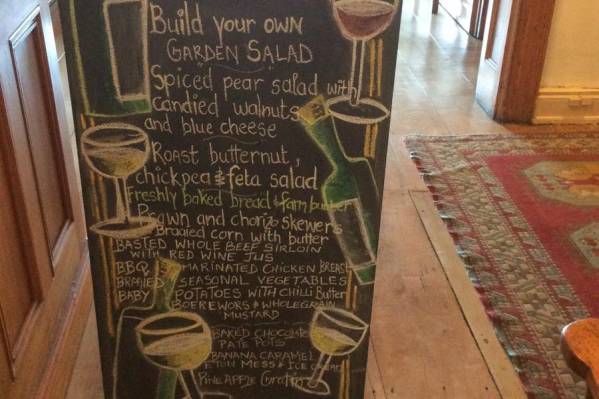 Build your own
GARDEN SALAD
Spiced pear salad with
candied walnuts
and blue cheese
Roast butternut,
chickpea & feta salad
Freshly baked bread & farm butter
Prawn and chorizo skewers
Braaied corn with butter
BASTED WHOLE BEEF SIRLOIN
WITH RED WINE JUS
BBQ MARINATED CHICKEN BREAST
BRAAIED SEASONAL VEGETABLES
BABY POTATOES WITH CHILLI Butter
BOEREWORS & WHOLEGRAIN
MUSTARD
BAKED CHOCOLATE
PATE POTS
BANANA CARAMEL
ETON MESS & ICE CREAM
PINEAPPLE